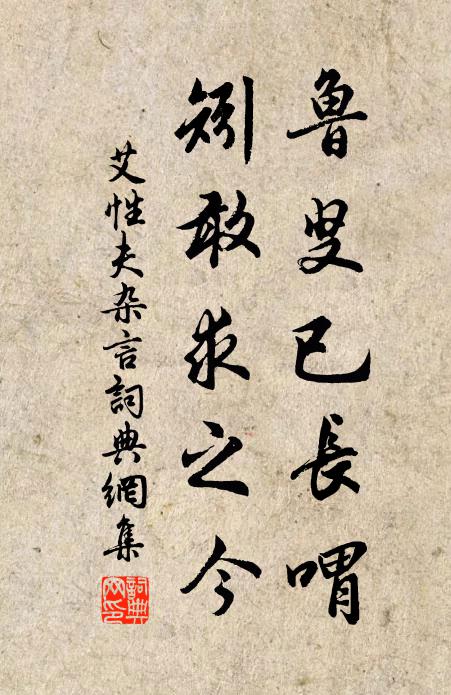 鲁叟已長喟
矧敢求之今
艾性夫杂言詞典網集
詞典網印